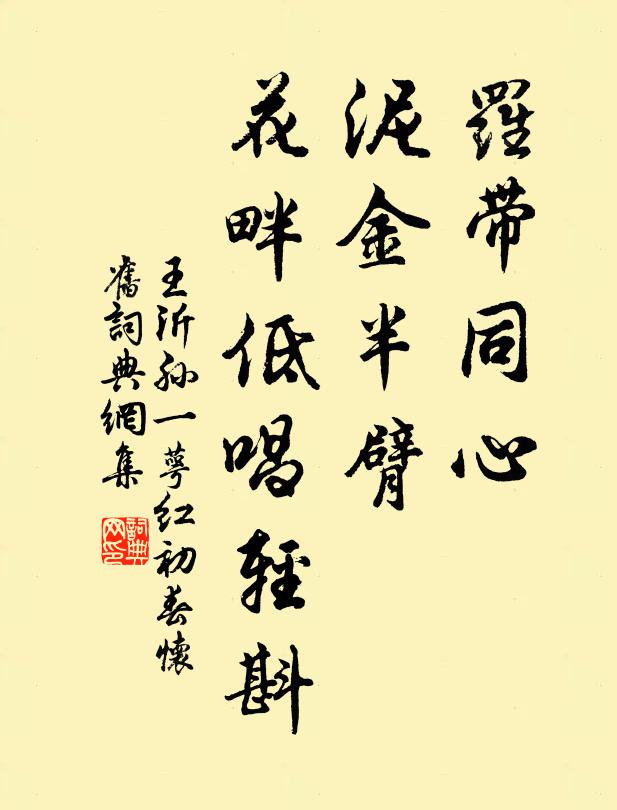 羅帶同心
泥金半臂
花畔低唱輕斟
王沂孫一萼紅初春懷
舊詞典網集
詞典網印